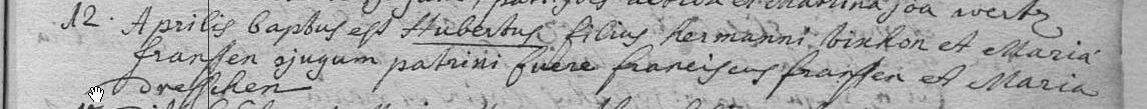 et Martina
12. Aprilis baptus est Hubertus filius hermanni vinken et Maria
franssen cjugum patrini fuere franciscus franssen et Maria
Dresschen